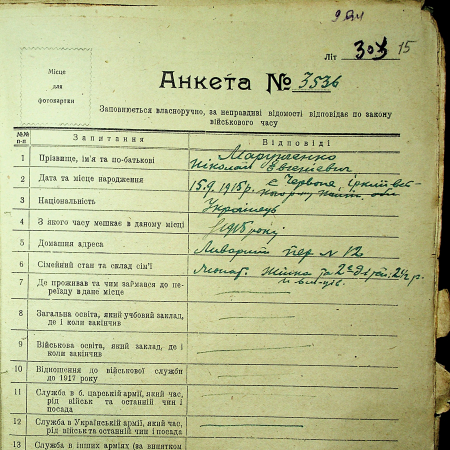 Літ 303 15
Місце
для
фотокартки
Анкета № 3536
Заповнюється власноручно, за неправдиві відомості відповідає по закону
військового часу
№№ п-п Запитання Відповіді
1 Прізвище, ім'я та по-батькові
Евгенієвич
2 Дата та місце народження 15.9.1915р. с. Червона
3 Національність Українець
4 З якого часу мешкає в даному місці року
5 Домашня адреса пер. N 12
6 Сімейний стан та склад сім'ї жінка та
7 Де проживав та чим займався до пе-
реїзду в дане місце
8 Загальна освіта, який учбовий заклад,
де і коли закінчив
9 Військова освіта, який заклад, де і
коли закінчив
10 Відношення до військової служби
до 1917 року
11 Служба в б. царській армії, який час,
рід військ та останній чин і
посада
12 Служба в Українській армії, який час,
рід військ та останній чин і посада
13 Служба в інших арміях (за винятком